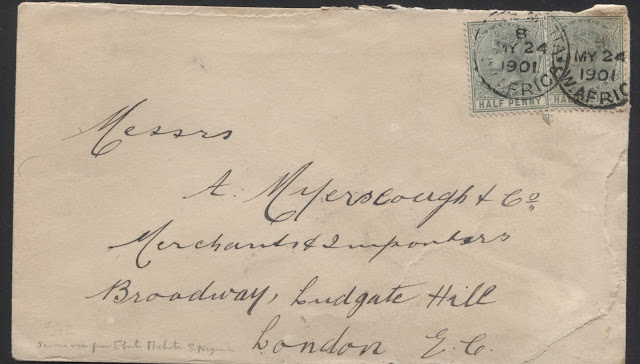 B
MY 24
1901
W. AFRICA
HALF PENNY
MY 24
1901
W. AFRICA
HAL
Messrs
A. Myerscough & Co
Merchants & Importers
Broadway, Ludgate Hill
London E.C.